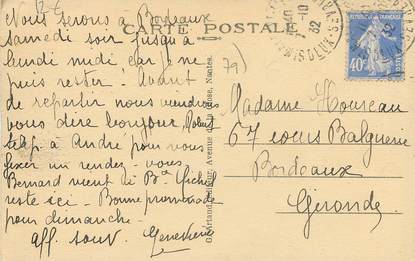 Nous serons à Bordeaux
samedi soir jusqu'à
lundi midi car je ne
puis rester. Avant
de repartir nous viendrons
vous dire bonjour, Robert
télép. à André pour vous
fixer un rendez-vous
Bernard vient de
reste ici - Bonne promenade
pour dimanche -
aff. souv. Geneviève
CARTE POSTALE
79
Artaud Avenue de la Nantes.
40c
32
Madame Houreau
67 cours Balguerie
Bordeaux
Gironde